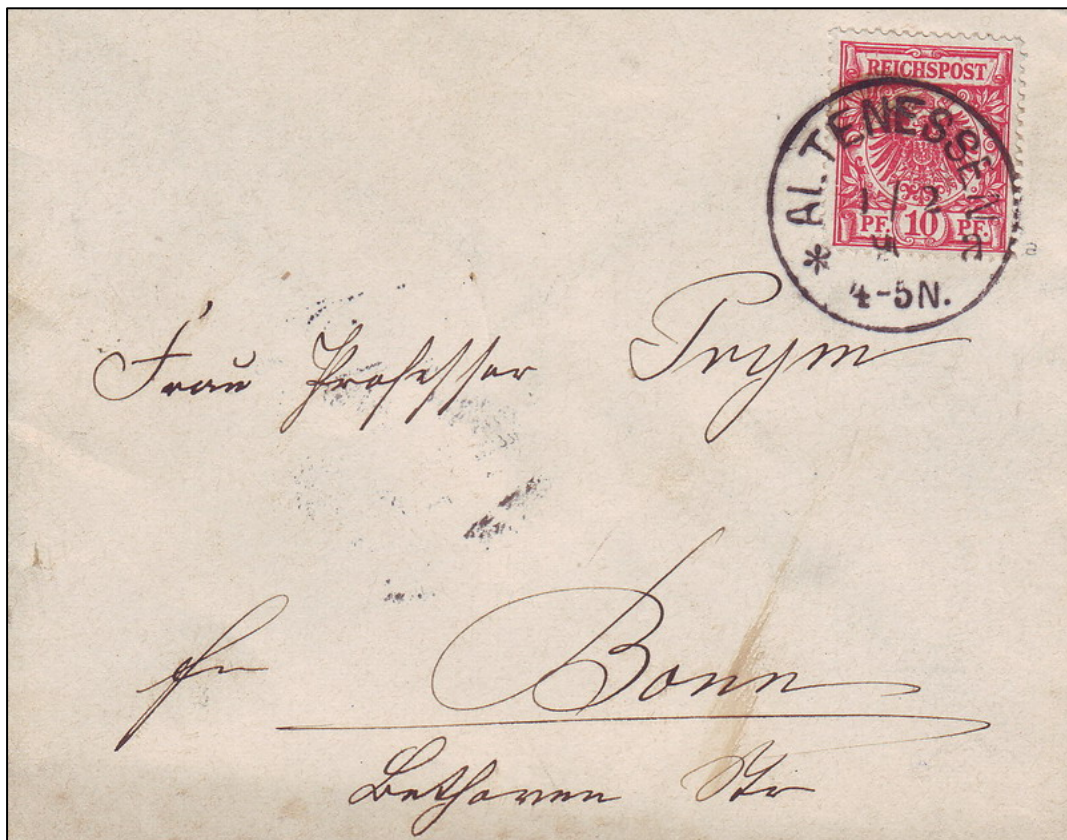 REICHSPOST
PF. 10 PF.
* ALTENESSEN
1/2
4-5N.
a
Frau Professor Prym
in Bonn
Bethoven Str